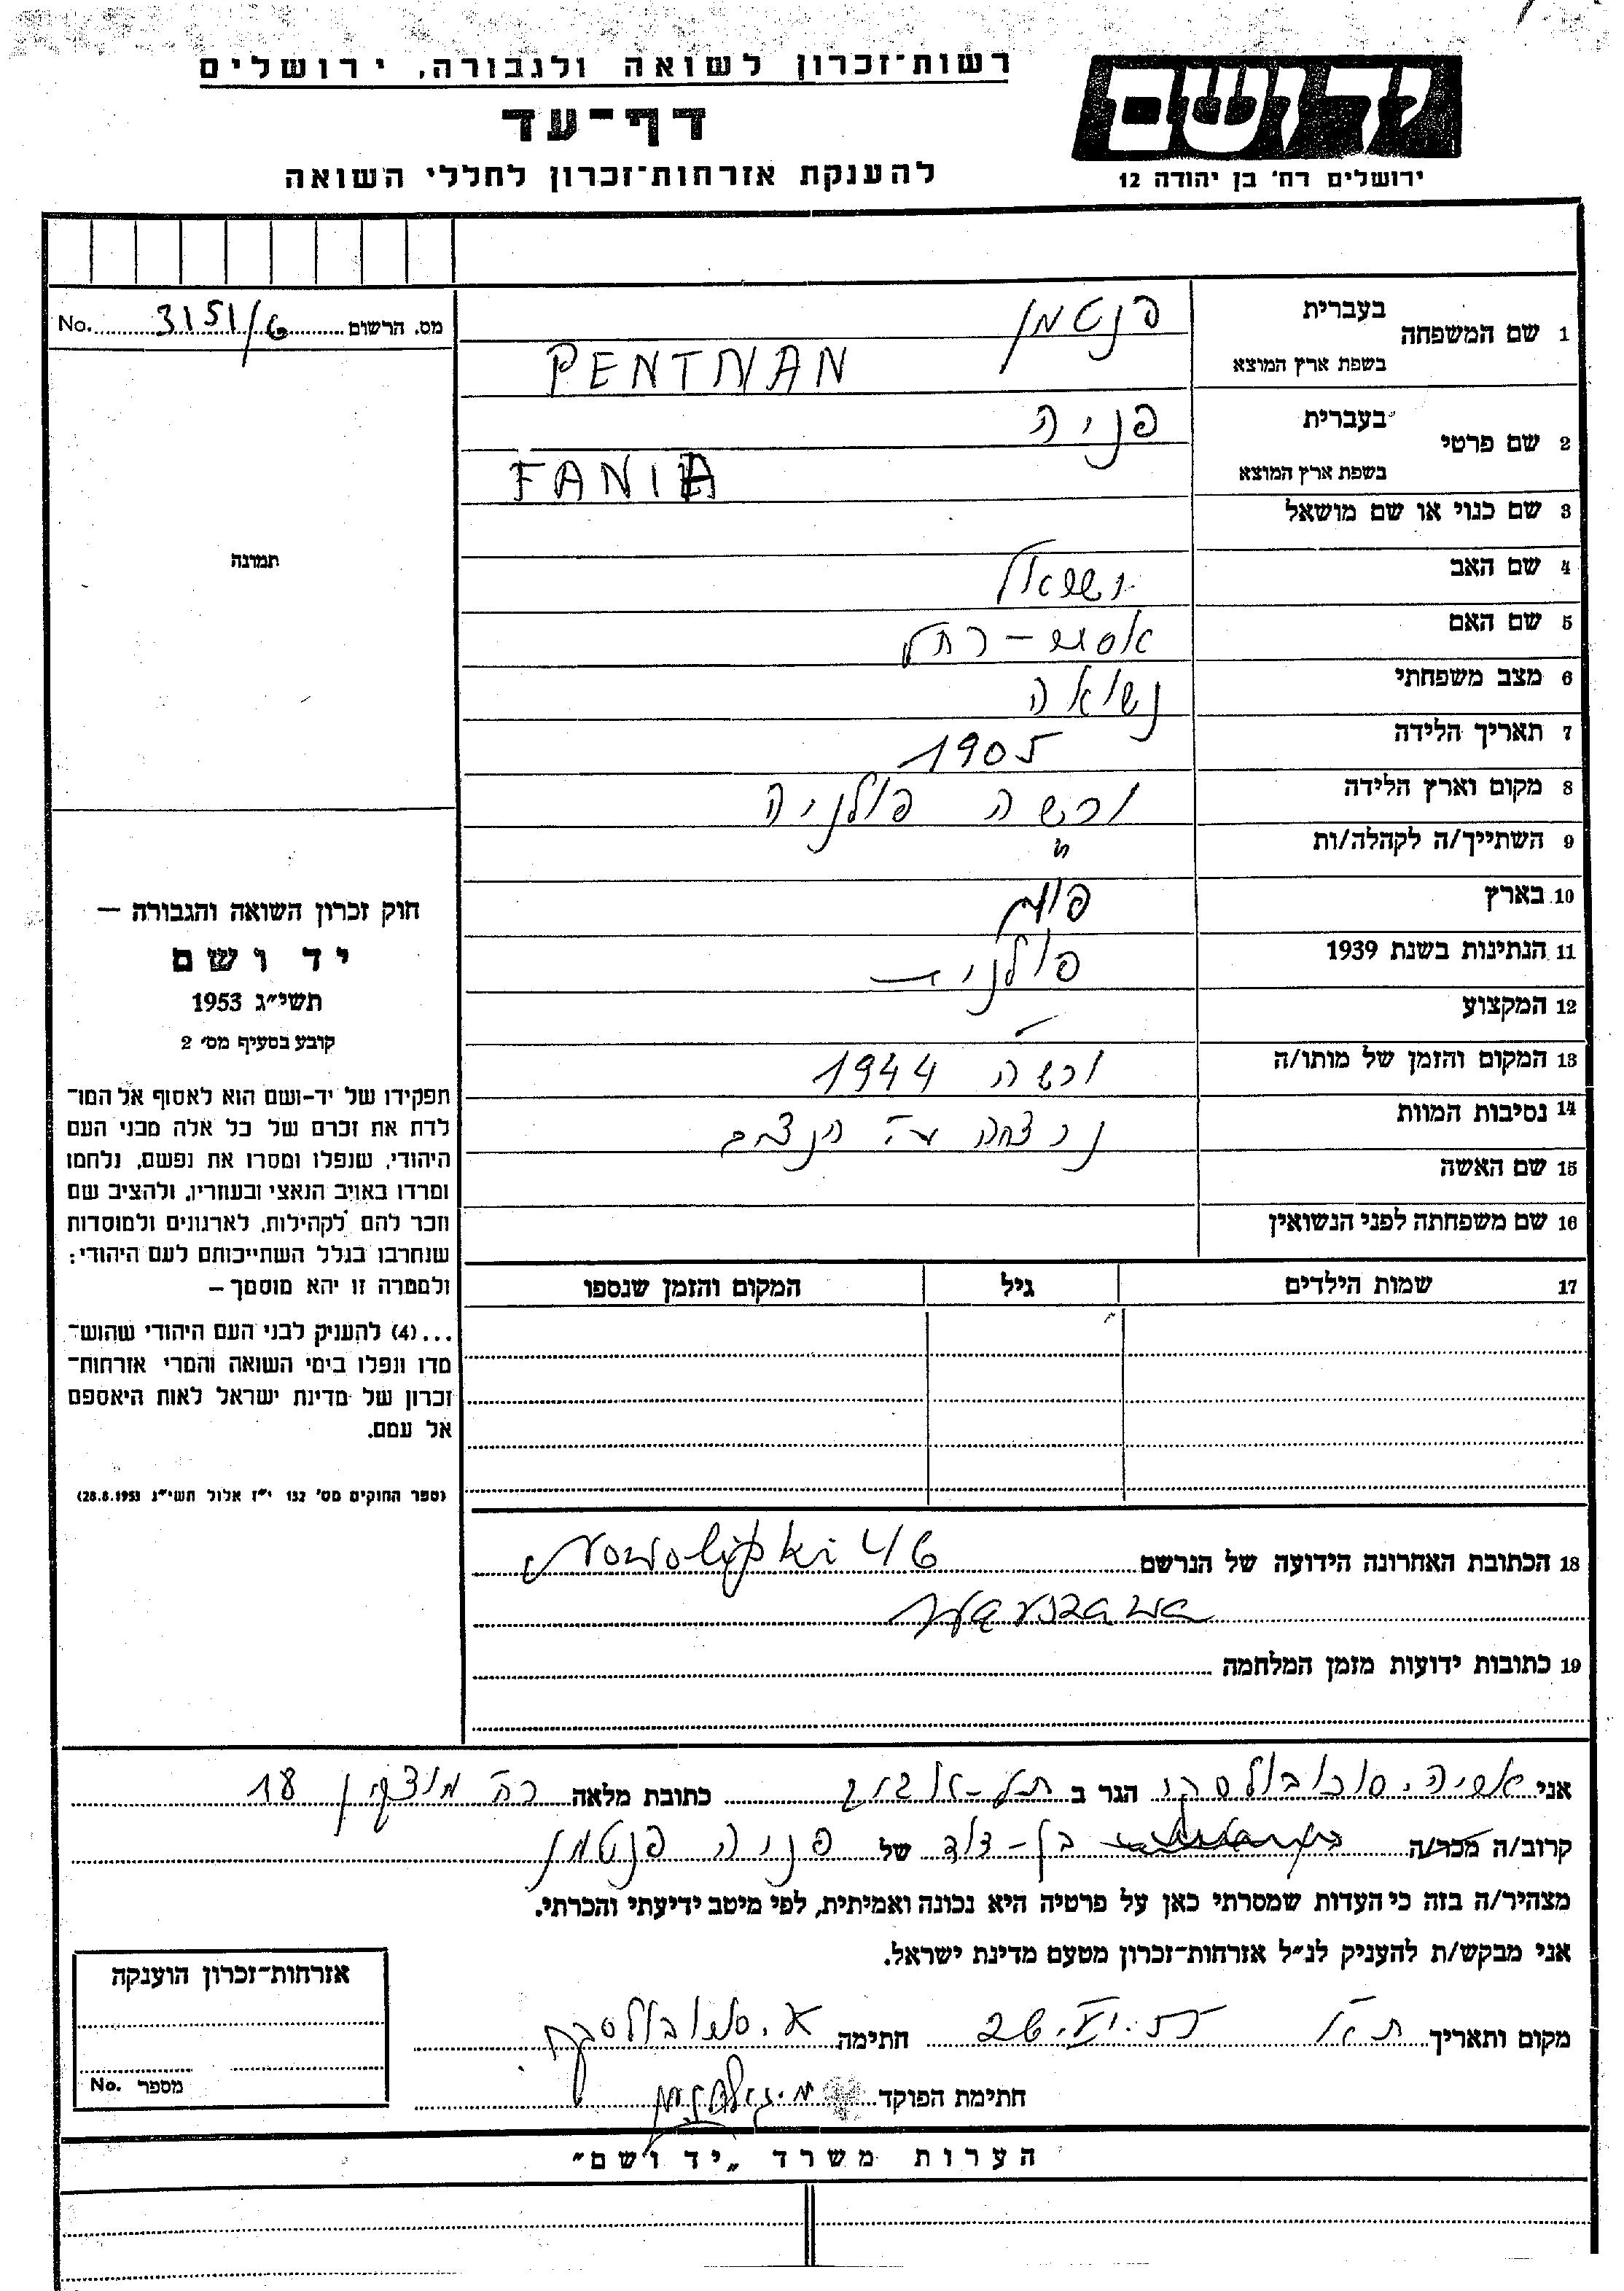 רשות־זכרון לשואה ולגבורה, ירושלים
יד ושם
דף־עד
להענקת אזרחות־זכרון לחללי השואה
ירושלים רח' בן יהודה 12
מס. הרשום 3151/6 No.
1 שם המשפחה בעברית פנטמן
בשפת ארץ המוצא PENTMAN
2 שם פרטי בעברית פניה
בשפת ארץ המוצא FANIA
3 שם כנוי או שם מושאל
תמונה
4 שם האב ישראל
5 שם האם אסתר-רחל
6 מצב משפחתי נשואה
7 תאריך הלידה 1905
8 מקום וארץ הלידה ורשה פולניה
9 השתייך/ה לקהלה/ות "
10 בארץ פולין
11 הנתינות בשנת 1939 פולנית
12 המקצוע -
13 המקום והזמן של מותו/ה ורשה 1944
14 נסיבות המוות נרצחה
15 שם האשה
16 שם משפחתה לפני הנשואין
חוק זכרון השואה והגבורה –
יד ושם
תשי״ג 1953
קובע בסעיף מס׳ 2
תפקידו של יד-ושם הוא לאסוף אל המו־
לדת את זכרם של כל אלה מבני העם
היהודי, שנפלו ומסרו את נפשם, נלחמו
ומרדו באויב הנאצי ובעוזריו, ולהציב שם
וזכר להם לקהילות, לארגונים ולמוסדות
שנחרבו בגלל השתייכותם לעם היהודי;
ולמטרה זו יהא מוסמך –
...(4) להעניק לבני העם היהודי שהוש־
מדו ונפלו בימי השואה והמרי אזרחות־
זכרון של מדינת ישראל לאות היאספם
אל עמם.
(ספר החוקים מס׳ 132 י״ז אלול תשי״ג 28.8.1953)
17 שמות הילדים גיל המקום והזמן שנספו
18 הכתובת האחרונה הידועה של הנרשם Nowolipki 46
Warszawa
19 כתובות ידועות מזמן המלחמה
אני הגר ב תל-אביב כתובת מלאה רח' מוצקין 18
קרוב/ה מכר/ה בן-דוד של פניה פנטמן
מצהיר/ה בזה כי העדות שמסרתי כאן על פרטיה היא נכונה ואמיתית, לפי מיטב ידיעתי והכרתי.
אני מבקש/ת להעניק לנ״ל אזרחות־זכרון מטעם מדינת ישראל.
אזרחות־זכרון הוענקה
מספר No.
מקום ותאריך ת"א חתימה
חתימת הפוקד
הערות משרד „יד ושם״